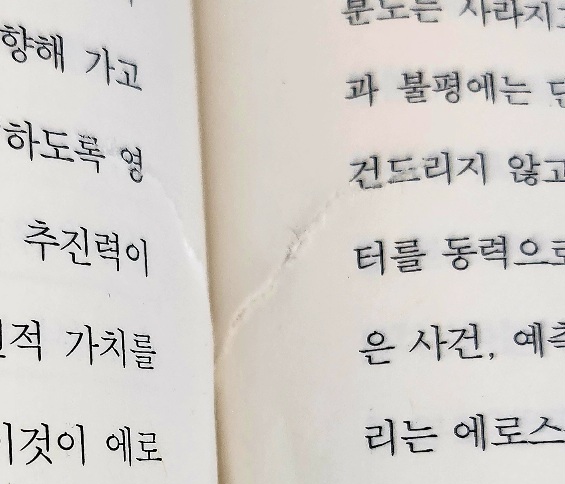 향해 가고
하도록 영
추진력이
적 가치를
이것이 에로
분노는 사라지고
과 불평에는
건드리지 않고
터를 동력으로
은 사건, 예측
리는 에로스